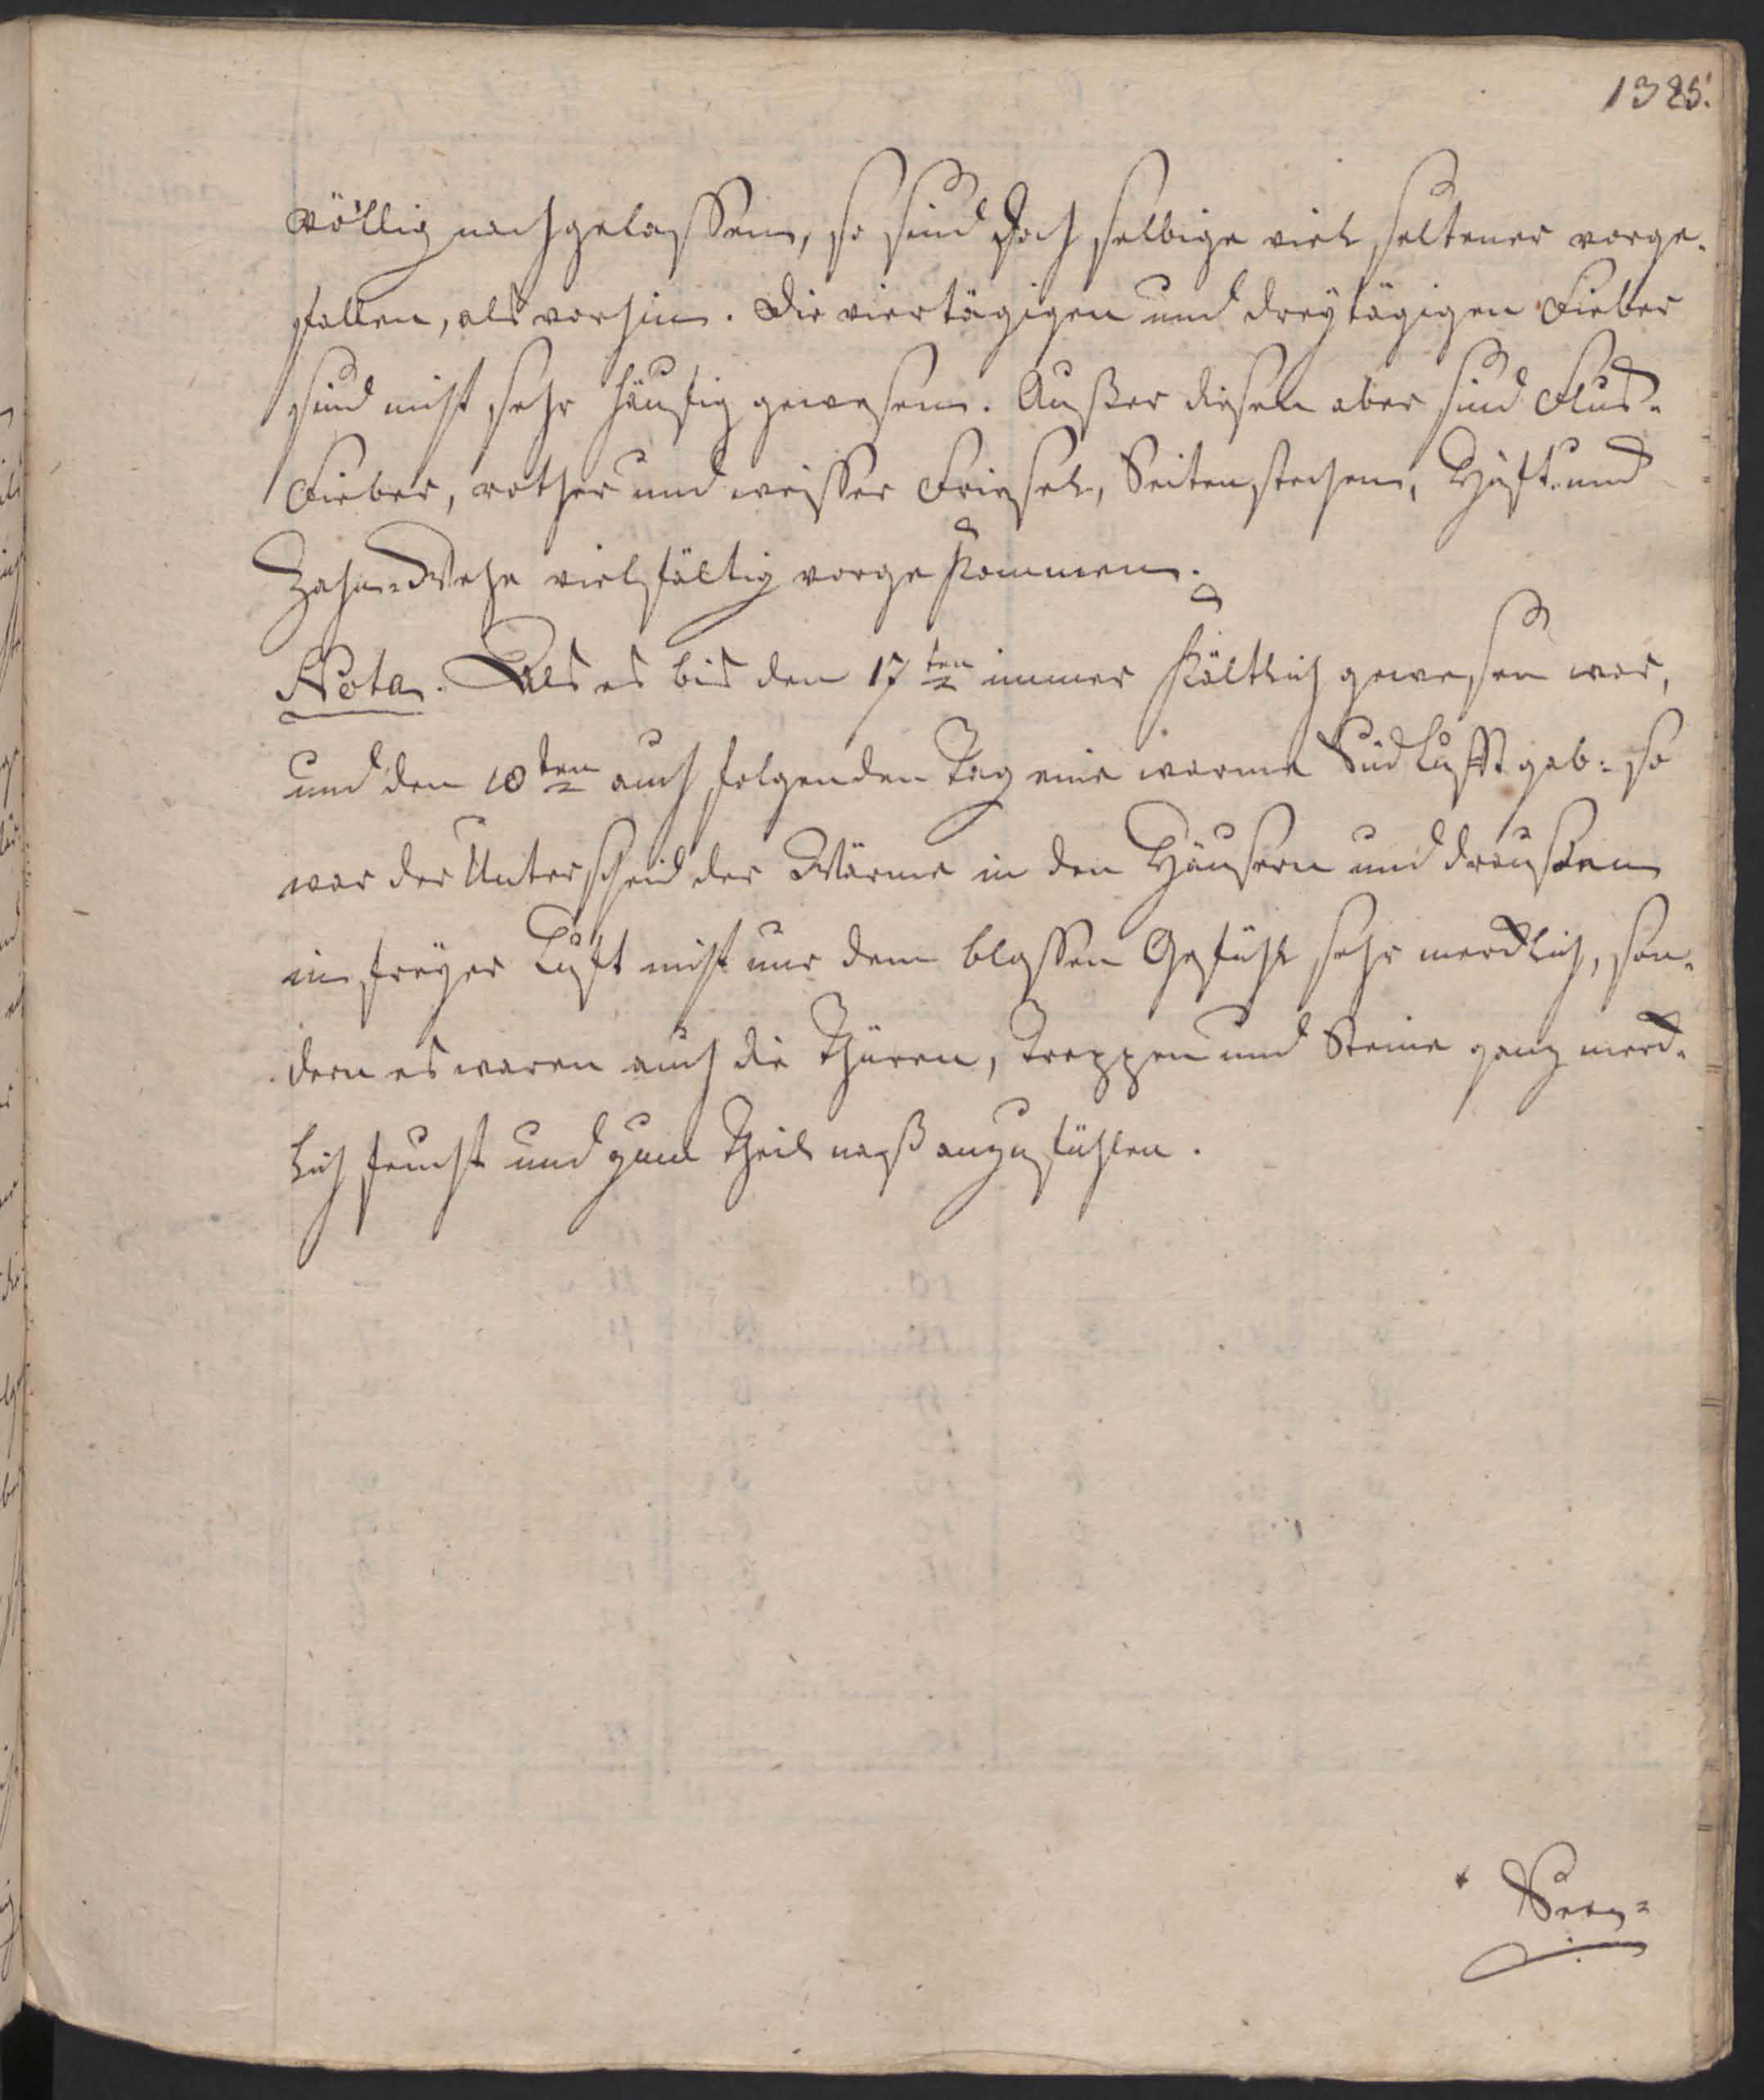 1385.
völlig nachgelassen, so sind doch selbige viel seltener vorge-
fallen, als vorhin. Die viertägigen und dreytägigen Fieber
sind nicht sehr häufig gewesen. Außer diesen aber sind Flus-
Fieber, rother und weisser Friesel, Seitenstechen, Hüft- und
Zahn-Wehe vielfältig vorgekommen.
Nota. Als es bis den 17ten immer kältlich gewesen war,
und den 18ten auch folgenden Tag eine warme Südlufft gab: so
war der Unterscheid der Wärme in den Häusern und draussen
in freyer Luft nicht nur dem blossen Gefühl sehr mercklich, son-
dern es waren auch die Thüren, Treppen und Steine ganz merck-
lich feucht und zum Theil naß anzufühlen.